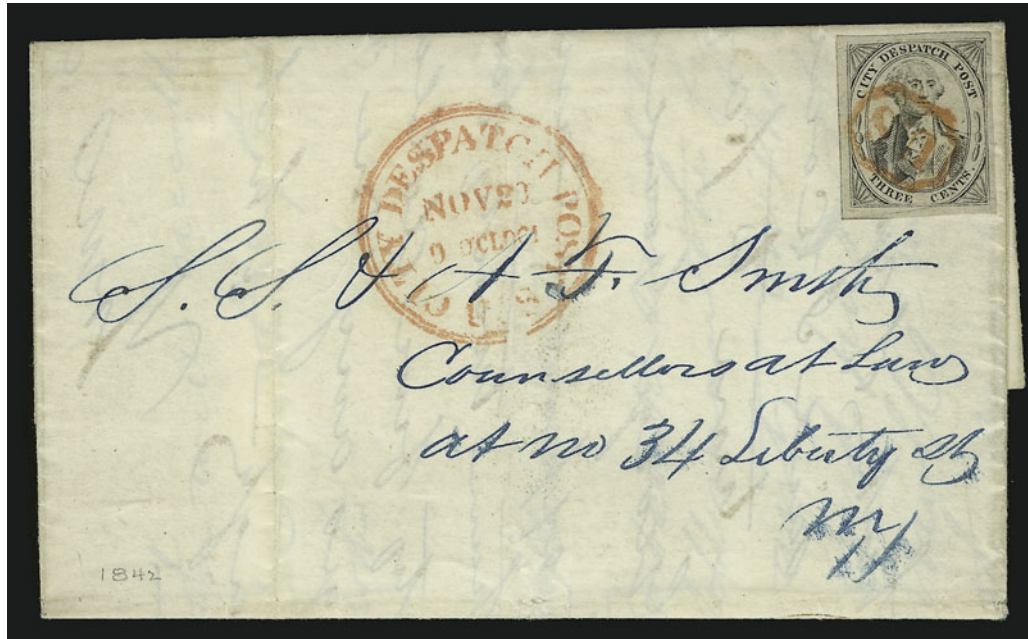 CITY DESPATCH POST
THREE CENTS.
CITY DESPATCH POST
U.S.
S. S. & A F. Smith
Counsellors at Law
at no 34 Liberty St
NY
1842